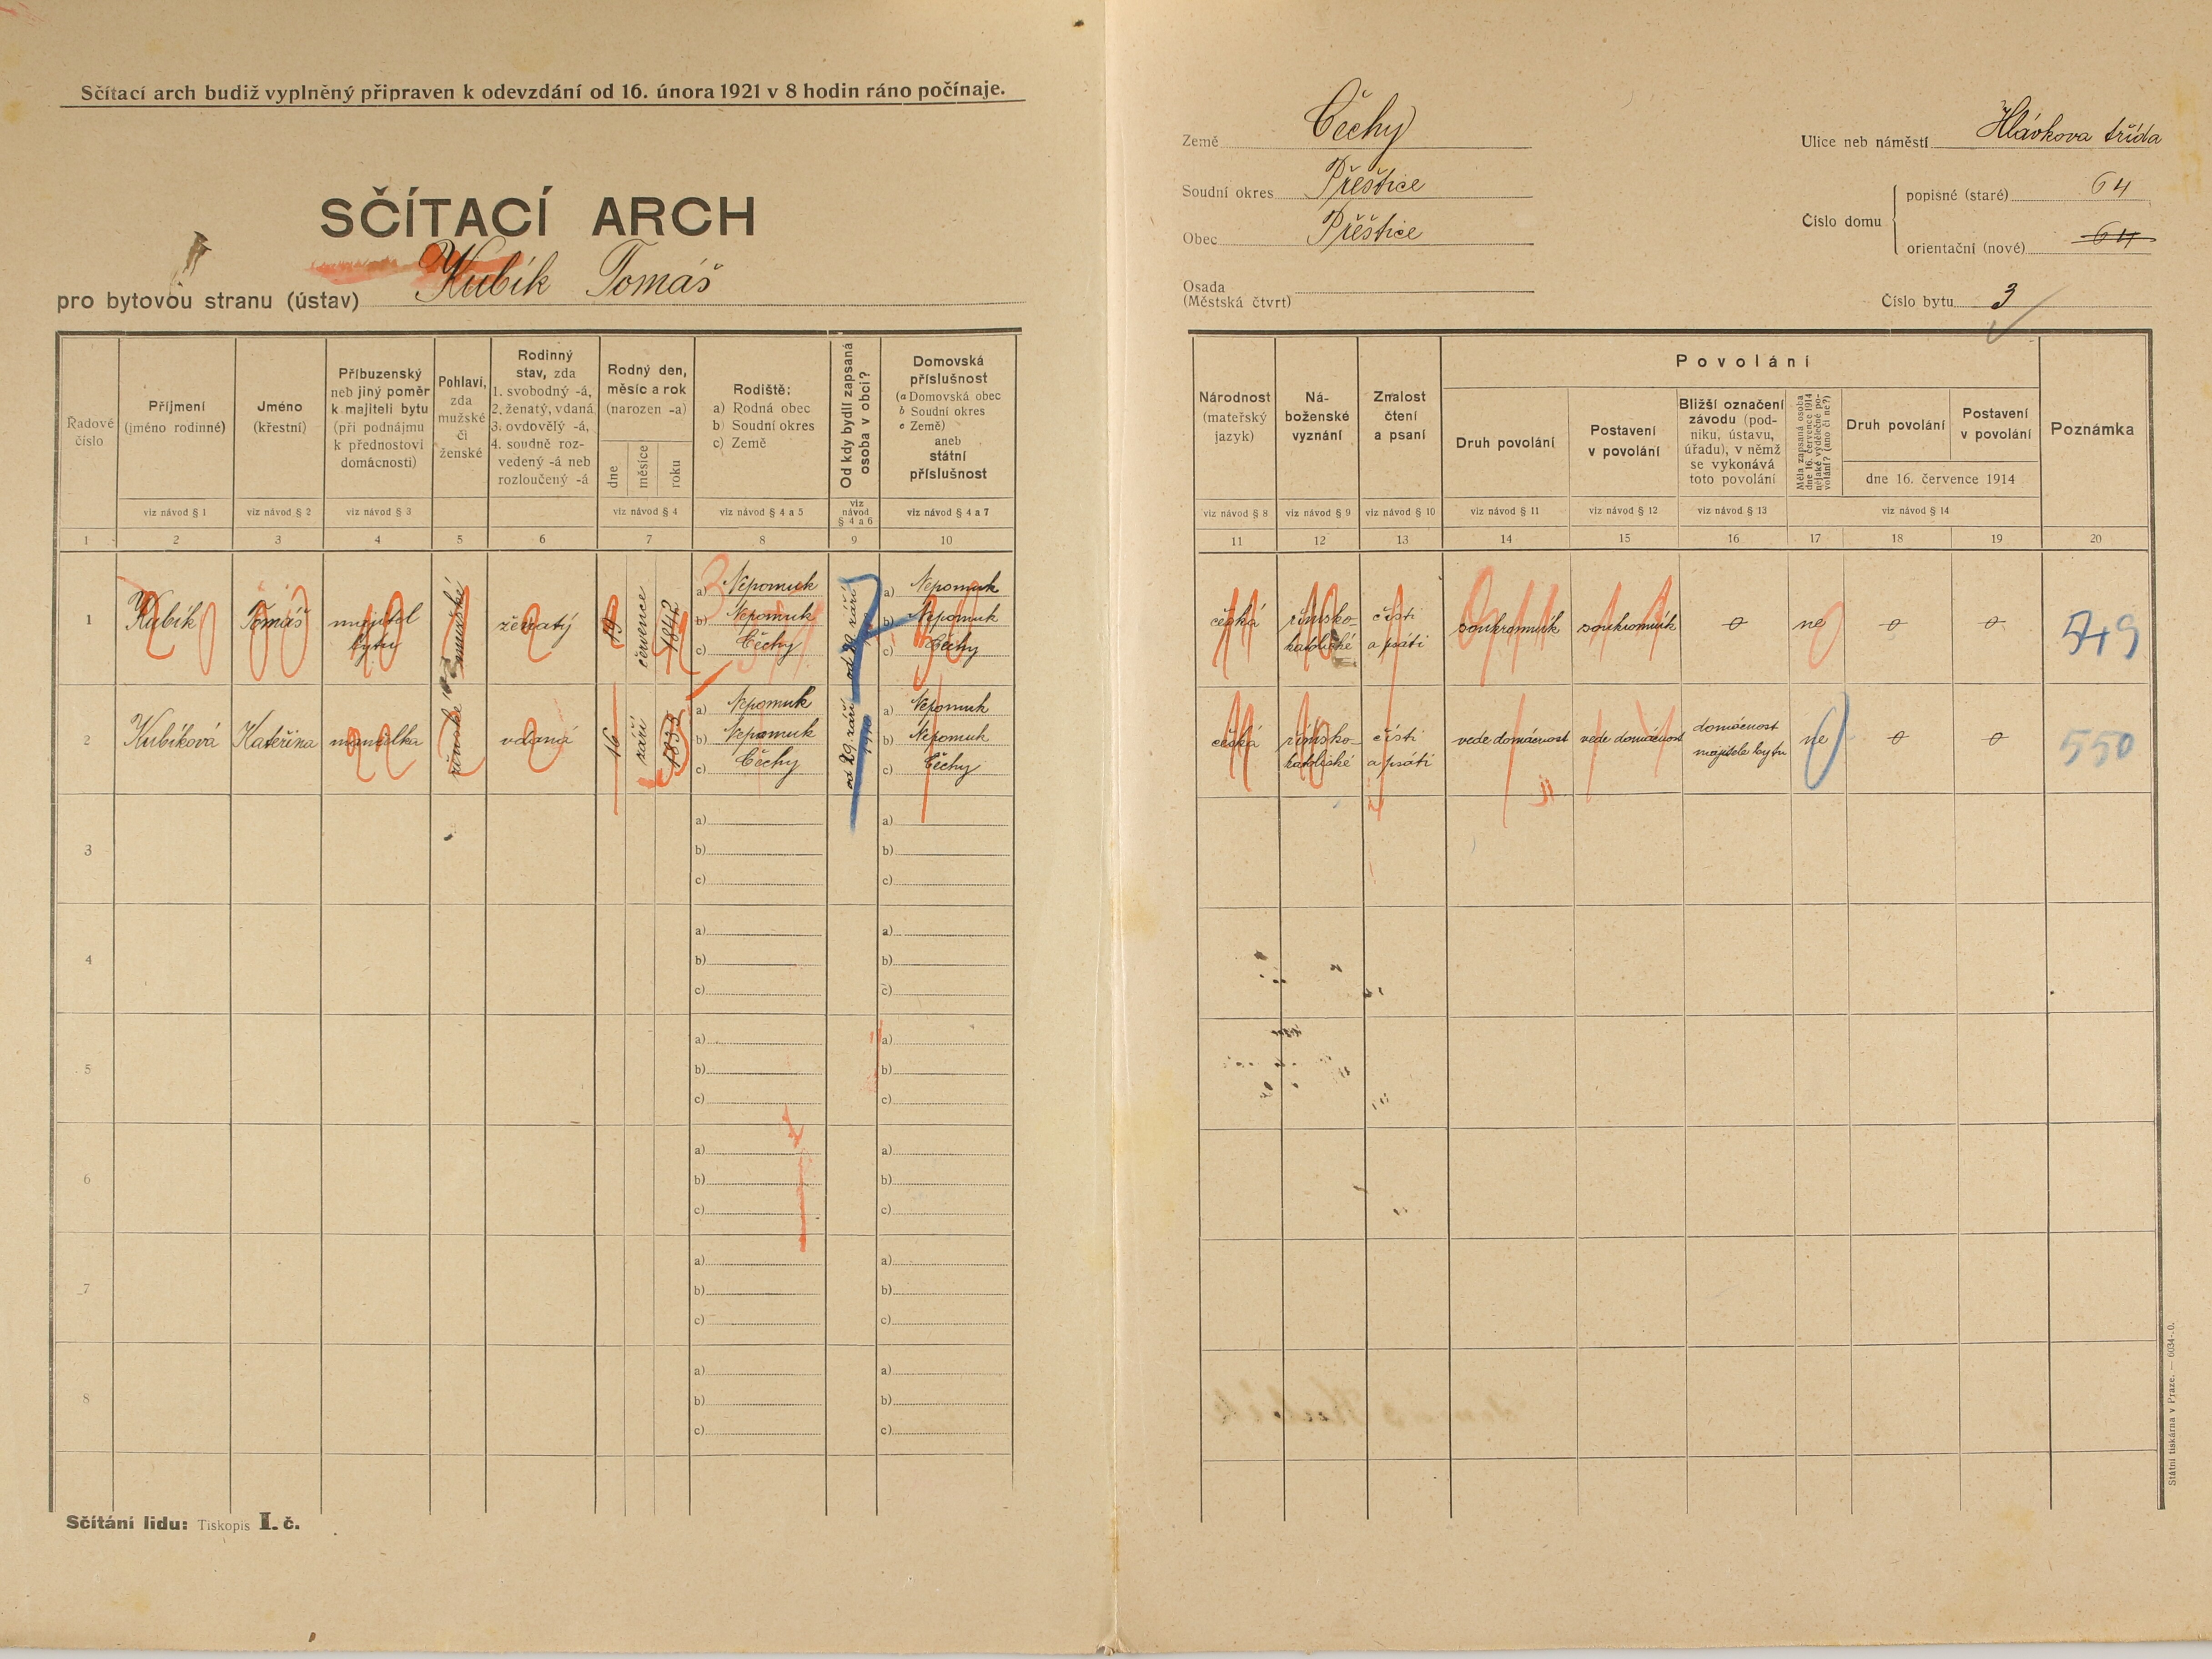 Sčítací arch budiž vyplněný připraven k odevzdání od 16. února 1921 v 8 hodin ráno počínaje.
SČÍTACÍ ARCH
pro bytovou stranu (ústav) Kubík Tomáš
Země Čechy
Soudní okres Přeštice
Obec Přeštice
Osada
(Městská čtvrt)
Ulice neb náměstí Hlávkova třída
Číslo domu
popisné (staré) 64
orientační (nové) 64
Číslo bytu 3
Řadové
číslo
Příjmení
(jméno rodinné)
Jméno
(křestní)
Příbuzenský
neb jiný poměr
k majiteli bytu
(při podnájmu
k přednostovi
domácnosti)
Pohlaví,
zda
mužské
či
ženské
Rodinný
stav, zda
1. svobodný -á,
2. ženatý, vdaná
3. ovdovělý -á,
4. soudně roz-
vedený -á neb
rozloučený -á
Rodný den,
měsíc a rok
(narozen -a)
dne
měsíce
roku
Rodiště:
a) Rodná obec
b) Soudní okres
c) Země
Od kdy bydlí zapsaná
osoba v obci?
Domovská
příslušnost
(a Domovská obec
b Soudní okres
c Země)
aneb
státní
příslušnost
viz návod § 1
viz návod § 2
viz návod § 3
viz návod § 4
viz návod § 4 a 5
viz
návod
§ 4 a 6
viz návod § 4 a 7
1 2 3 4 5 6 7 8 9 10
Národnost
(mateřský
jazyk)
Ná-
boženské
vyznání
Znalost
čtení
a psaní
Povolání
Druh povolání
Postavení
v povolání
Bližší označení
závodu (pod-
niku, ústavu,
úřadu), v němž
se vykonává
toto povolání
Měla zapsaná osoba
dne 16. července 1914
nějaké výdělečné po-
volání? (ano či ne?)
Druh povolání
Postavení
v povolání
dne 16. července 1914
Poznámka
viz návod § 8
viz návod § 9
viz návod § 10
viz návod § 11
viz návod § 12
viz návod § 13
viz návod § 14
11 12 13 14 15 16 17 18 19 20
1
Kubík
Tomáš
majitel
bytu
mužské
ženatý
19
července
1842
a) Nepomuk
b) Nepomuk
c) Čechy
od 29 září
a) Nepomuk
b) Nepomuk
c) Čechy
česká
římsko-
katolické
čísti
a psáti
soukromník
soukromník
0
ne
0
0
549
2
Kubíková
Kateřina
manželka
ženské
vdaná
16
září
a) Nepomuk
b) Nepomuk
c) Čechy
od 29 září
a) Nepomuk
b) Nepomuk
c) Čechy
česká
římsko-
katolické
čísti
a psáti
vede domácnost
vede domácnost
domácnost
majitele bytu
ne
0
0
550
3
a)
b)
c)
a)
b)
c)
4
a)
b)
c)
a)
b)
c)
5
a)
b)
c)
a)
b)
c)
6
a)
b)
c)
a)
b)
c)
7
a)
b)
c)
a)
b)
c)
8
a)
b)
c)
a)
b)
c)
Sčítání lidu: Tiskopis I. č.
Státní tiskárna v Praze. — 6034-.0.